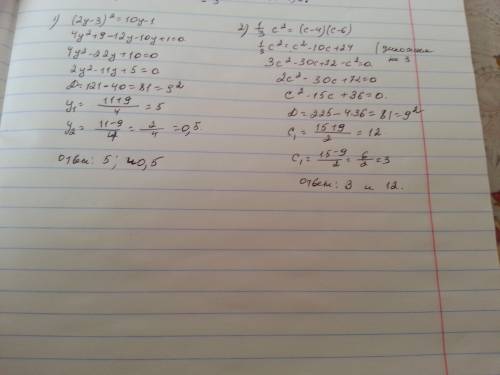 1) (2y-3)² = 10y-1
4y²+9-12y-10y+1=0
4y²-22y+10=0
2y²-11y+5=0
D=121-40=81=9²
y₁= 11+9/4 = 5
y₂= 11-9/4 = 2/4 = 0,5.
ответ: 5; 0,5
2) 1/3 c² = (c-4)(c-6)
1/3 c² = c²-10c+24 | умножим на 3
3c²-30c+72-c²=0.
2c²-30c+72=0
c²-15c+36=0.
D=225-4·36=81=9²
c₁= 15+9/2 = 12
c₁= 15-9/2 = 6/2 = 3
ответ: 3 и 12.